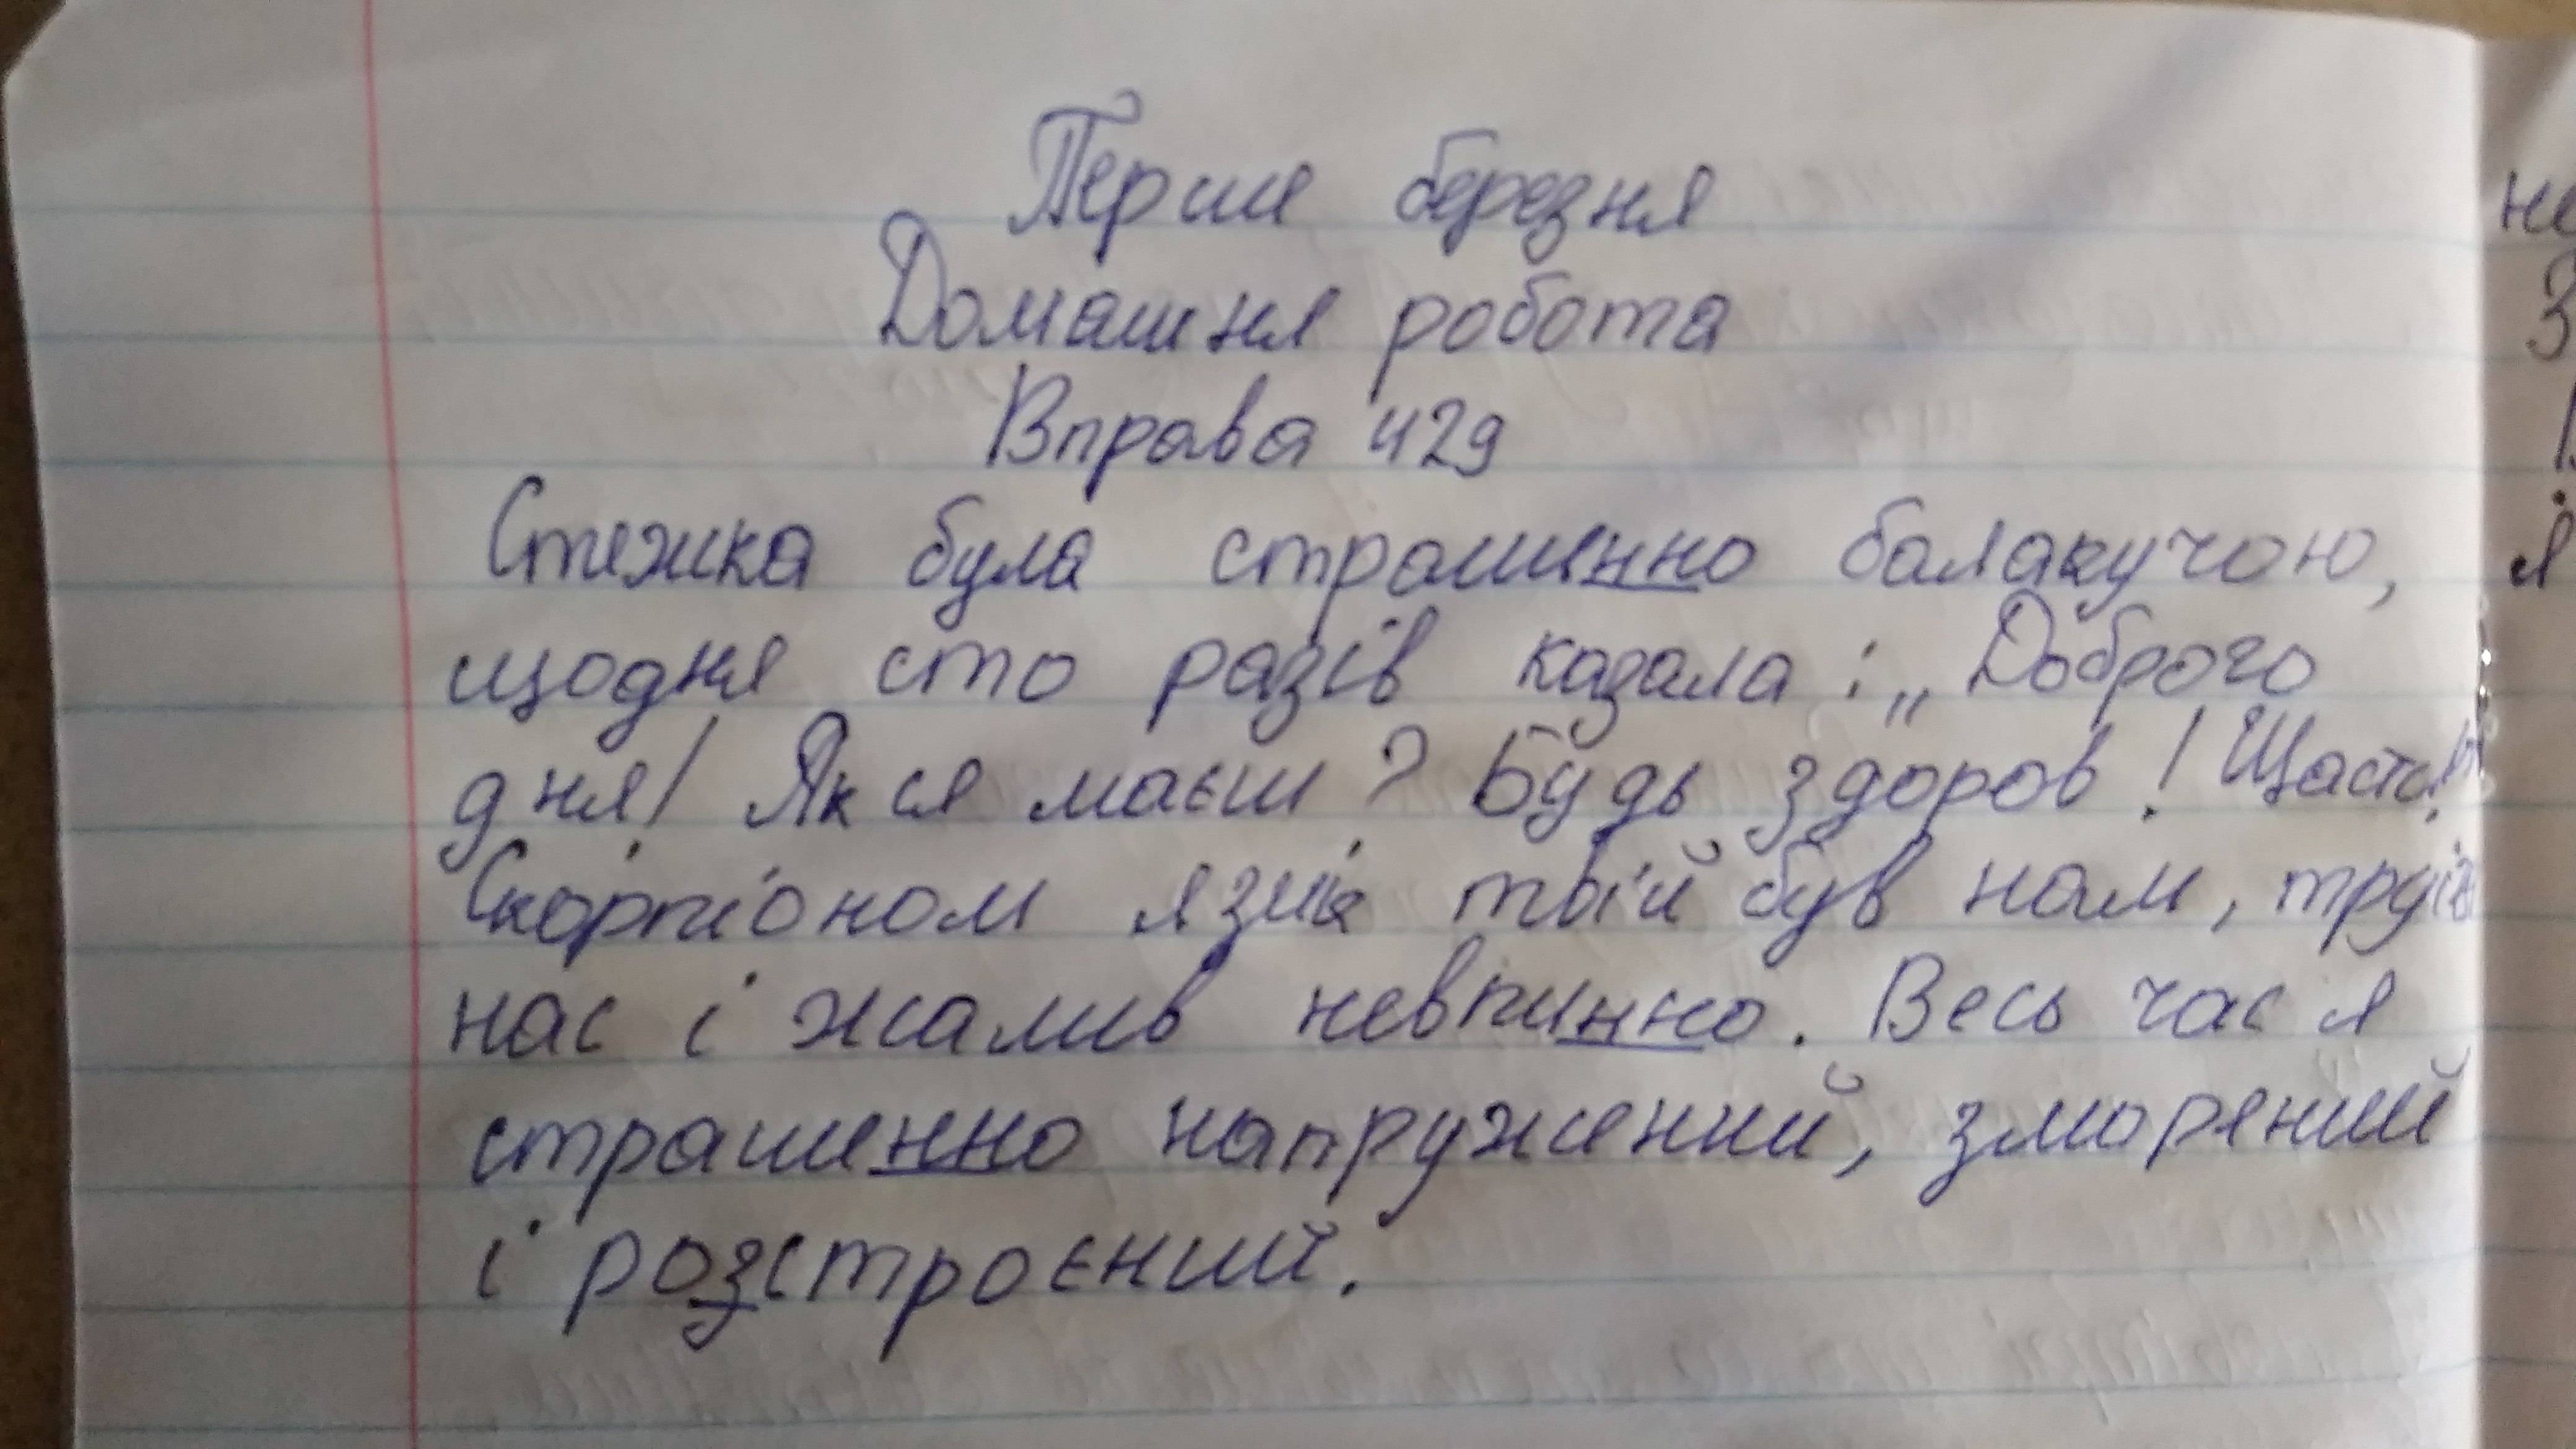 Перше березня
Домашня робота
Вправа 429
Стежка була страшенно балакучою,
щодня сто разів казала: „Доброго
дня! Як ся маєш? Будь здоров!
Скорпіоном язик твій був нам, труїв
нас і жалив невпинно. Весь час я
страшенно напружений, зморений
і розстроєний.
не
З
я